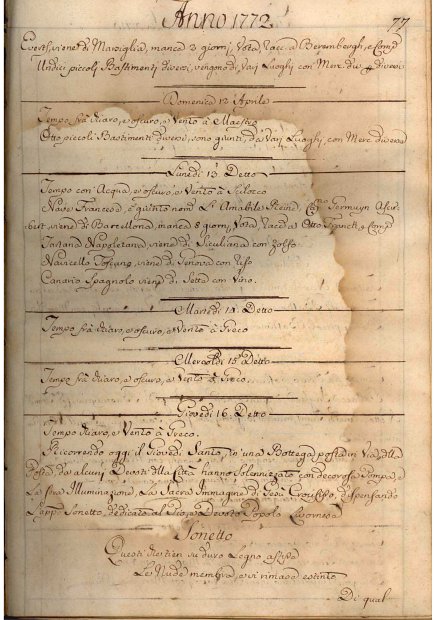 Anno 1772.
77
viene di Marsiglia, manca 3 giorni, Vota, Racc. a Berembergh, e Comp.
Undici piccoli Bastimenti diversi, vengono da Varj Luoghi con Merc. diverse
Domenica 12 Aprile
Tempo frà chiaro, e oscuro, e Vento à Maestro
Otto piccoli Bastimenti diversi, sono giunti, da Varj Luoghi, con Merc. diverse
Lunedì 13. Detto
Tempo con Acqua, e oscuro, e Vento à Scilocco
Nave Francese, è giunto nom. L'Amabile Reine, Cap.no Germuyn
viene di Barcellona, manca 8 giorni, Vota, Racc. ad Otto Franck, e Comp.
Tartana Napoletana viene di Siculiana con Zolfo
Navicello Toscano, viene di Genova con Riso
Canario Spagnolo viene di Setta con Vino.
Martedì 14. Detto
Tempo frà chiaro, e oscuro, e Vento à Greco
Mercoldì 15 Detto
Tempo frà chiaro, e oscuro, e Vento à Greco.
Giovedì 16. Detto
Tempo chiaro, e Vento à Greco.
Ricorrendo oggi il Giovedì Santo, in una Bottega posta in Via della
Posta, da alcuni Devoti della Città hanno solennizzato con decorosa Pompa, e
La sera Illuminazione, La Sacra Immagine di Gesù Crocifisso, dispensando
L'app. Sonetto, dedicato al Pio, e Devoto Popolo Livornese
Sonetto
Questi che tien su duro Legno affisso
Le Nude membra, e vi rimase estinto
Di qual